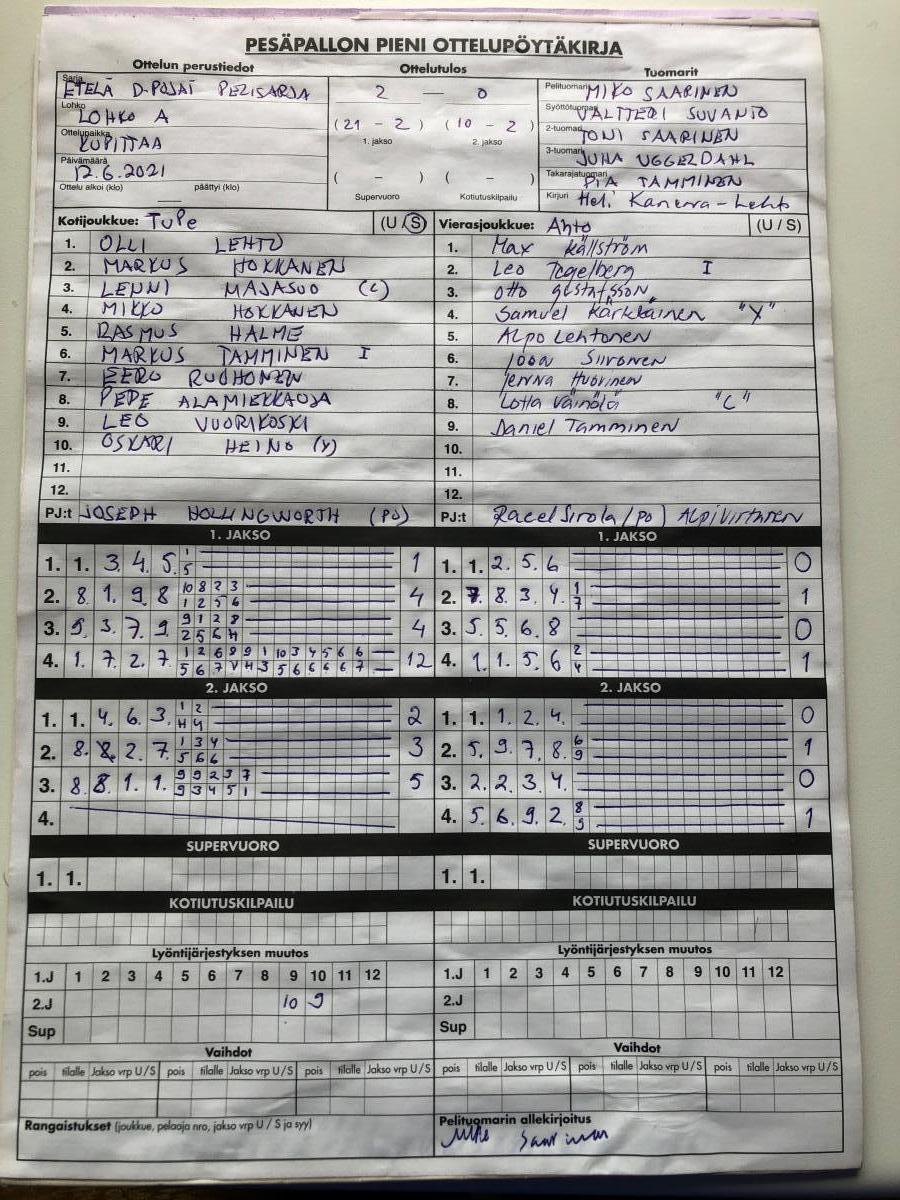 PESÄPALLON PIENI OTTELUPÖYTÄKIRJA
Ottelun perustiedot
Sarja ETELÄ D-POJAT PELISARJA
Lohko LOHKO A
Ottelupaikka KUPITTAA
Päivämäärä 12.6.2021
Ottelu alkoi (klo) päättyi (klo)
Ottelutulos
2 — 0
(21 - 2) (10 - 2)
1. jakso 2. jakso
( - ) ( - )
Supervuoro Kotiutuskilpailu
Tuomarit
Pelituomari MIKO SAARINEN
Syöttötuomari VALTTERI SUVANTO
2-tuomari TONI SAARINEN
3-tuomari JUHA UGGELDAHL
Takarajatuomari PIA TAMMINEN
Kirjuri Heli Kanerva-Lehto
Kotijoukkue: TuPe (U/S)
1. OLLI LEHTO
2. MARKUS HOKKANEN
3. LENNI MAJASUO (C)
4. MIKKO HOKKANEN
5. RASMUS HALME
6. MARKUS TAMMINEN I
7. EERO RUOHONEN
8. PEPE ALAMIEKKAOJA
9. LEO VUORIKOSKI
10. OSKARI HEINO (Y)
11.
12.
PJ:t JOSEPH HOLLINGWORTH (PJ)
Vierasjoukkue: Ahto (U / S)
1. Max Källström
2. Leo Tegelberg I
3. Otto Gustafsson
4. Samuel Kärkkäinen "Y"
5. Alpo Lehtonen
6. Joona Siironen
7. Jenna Huovinen
8. Lotta Väinölä "C"
9. Daniel Tamminen
10.
11.
12.
PJ:t (PJ) Alpi Virtanen
1. JAKSO
1. 1. 3. 4. 5. 1 1
5
2. 8. 1. 9. 8 10 8 2 3 4
1 2 5 6
3. 9. 3. 7. 9. 9 1 2 8 4
2 5 6 H
4. 1. 7. 2. 7. 1 2 6 8 9 1 10 3 4 5 6 6 12
5 6 7 V H 3 5 6 6 6 6 7
1. JAKSO
1. 1. 2. 5. 6 0
2. 7. 8. 3. 4. 1 1
7
3. 5. 5. 6. 8 0
4. 1. 1. 5. 6 2 1
4
2. JAKSO
1. 1. 4. 6. 3. 1 2 2
H 4
2. 8. 8. 2. 7. 1 3 4 3
5 6 6
3. 8. 8. 1. 1. 9 9 2 3 7 5
9 3 4 5 1
4.
2. JAKSO
1. 1. 1. 2. 4. 0
2. 5. 9. 7. 8. 6 1
9
3. 2. 2. 3. 4. 0
4. 5. 6. 9. 2. 8 1
9
SUPERVUORO
1. 1.
SUPERVUORO
1. 1.
KOTIUTUSKILPAILU
KOTIUTUSKILPAILU
Lyöntijärjestyksen muutos
1.J 1 2 3 4 5 6 7 8 9 10 11 12
2.J 10 9
Sup
Lyöntijärjestyksen muutos
1.J 1 2 3 4 5 6 7 8 9 10 11 12
2.J
Sup
Vaihdot
pois tilalle Jakso vrp U/S pois tilalle Jakso vrp U/S pois tilalle Jakso vrp U/S
Vaihdot
pois tilalle Jakso vrp U/S pois tilalle Jakso vrp U/S pois tilalle Jakso vrp U/S
Rangaistukset (joukkue, pelaaja nro, jakso vrp U / S ja syy)
Pelituomarin allekirjoitus